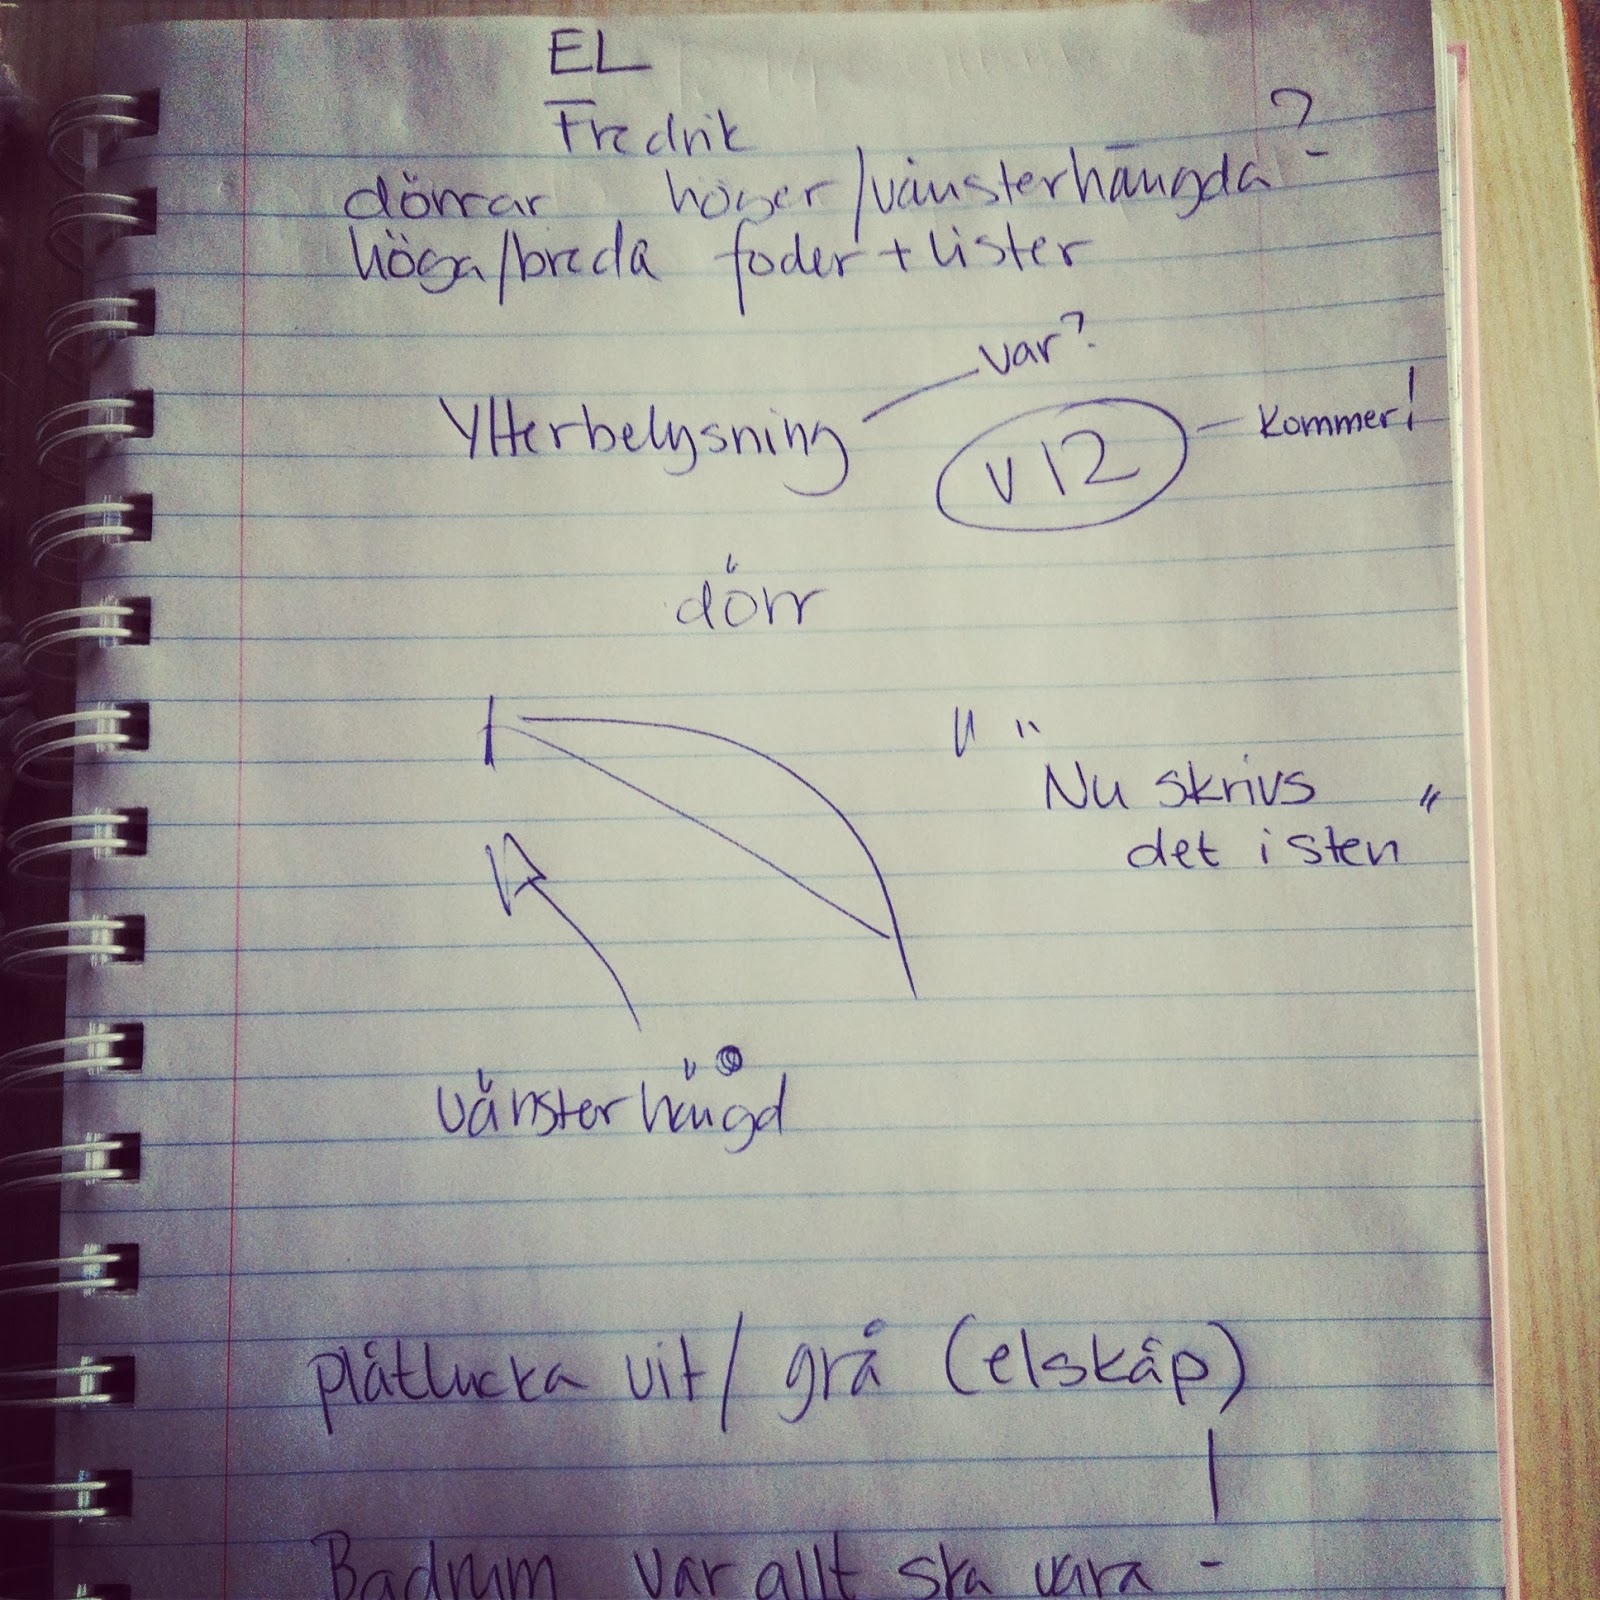 EL
Fredrik
dörrar höger/vänsterhängda?
höga/breda foder + lister
var?
Ytterbelysning
v 12 - Kommer!
dörr
"
Nu skrivs
det i sten "
vänsterhängd
plåtlucka vit/grå (elskåp)
Badrum var allt ska vara - !